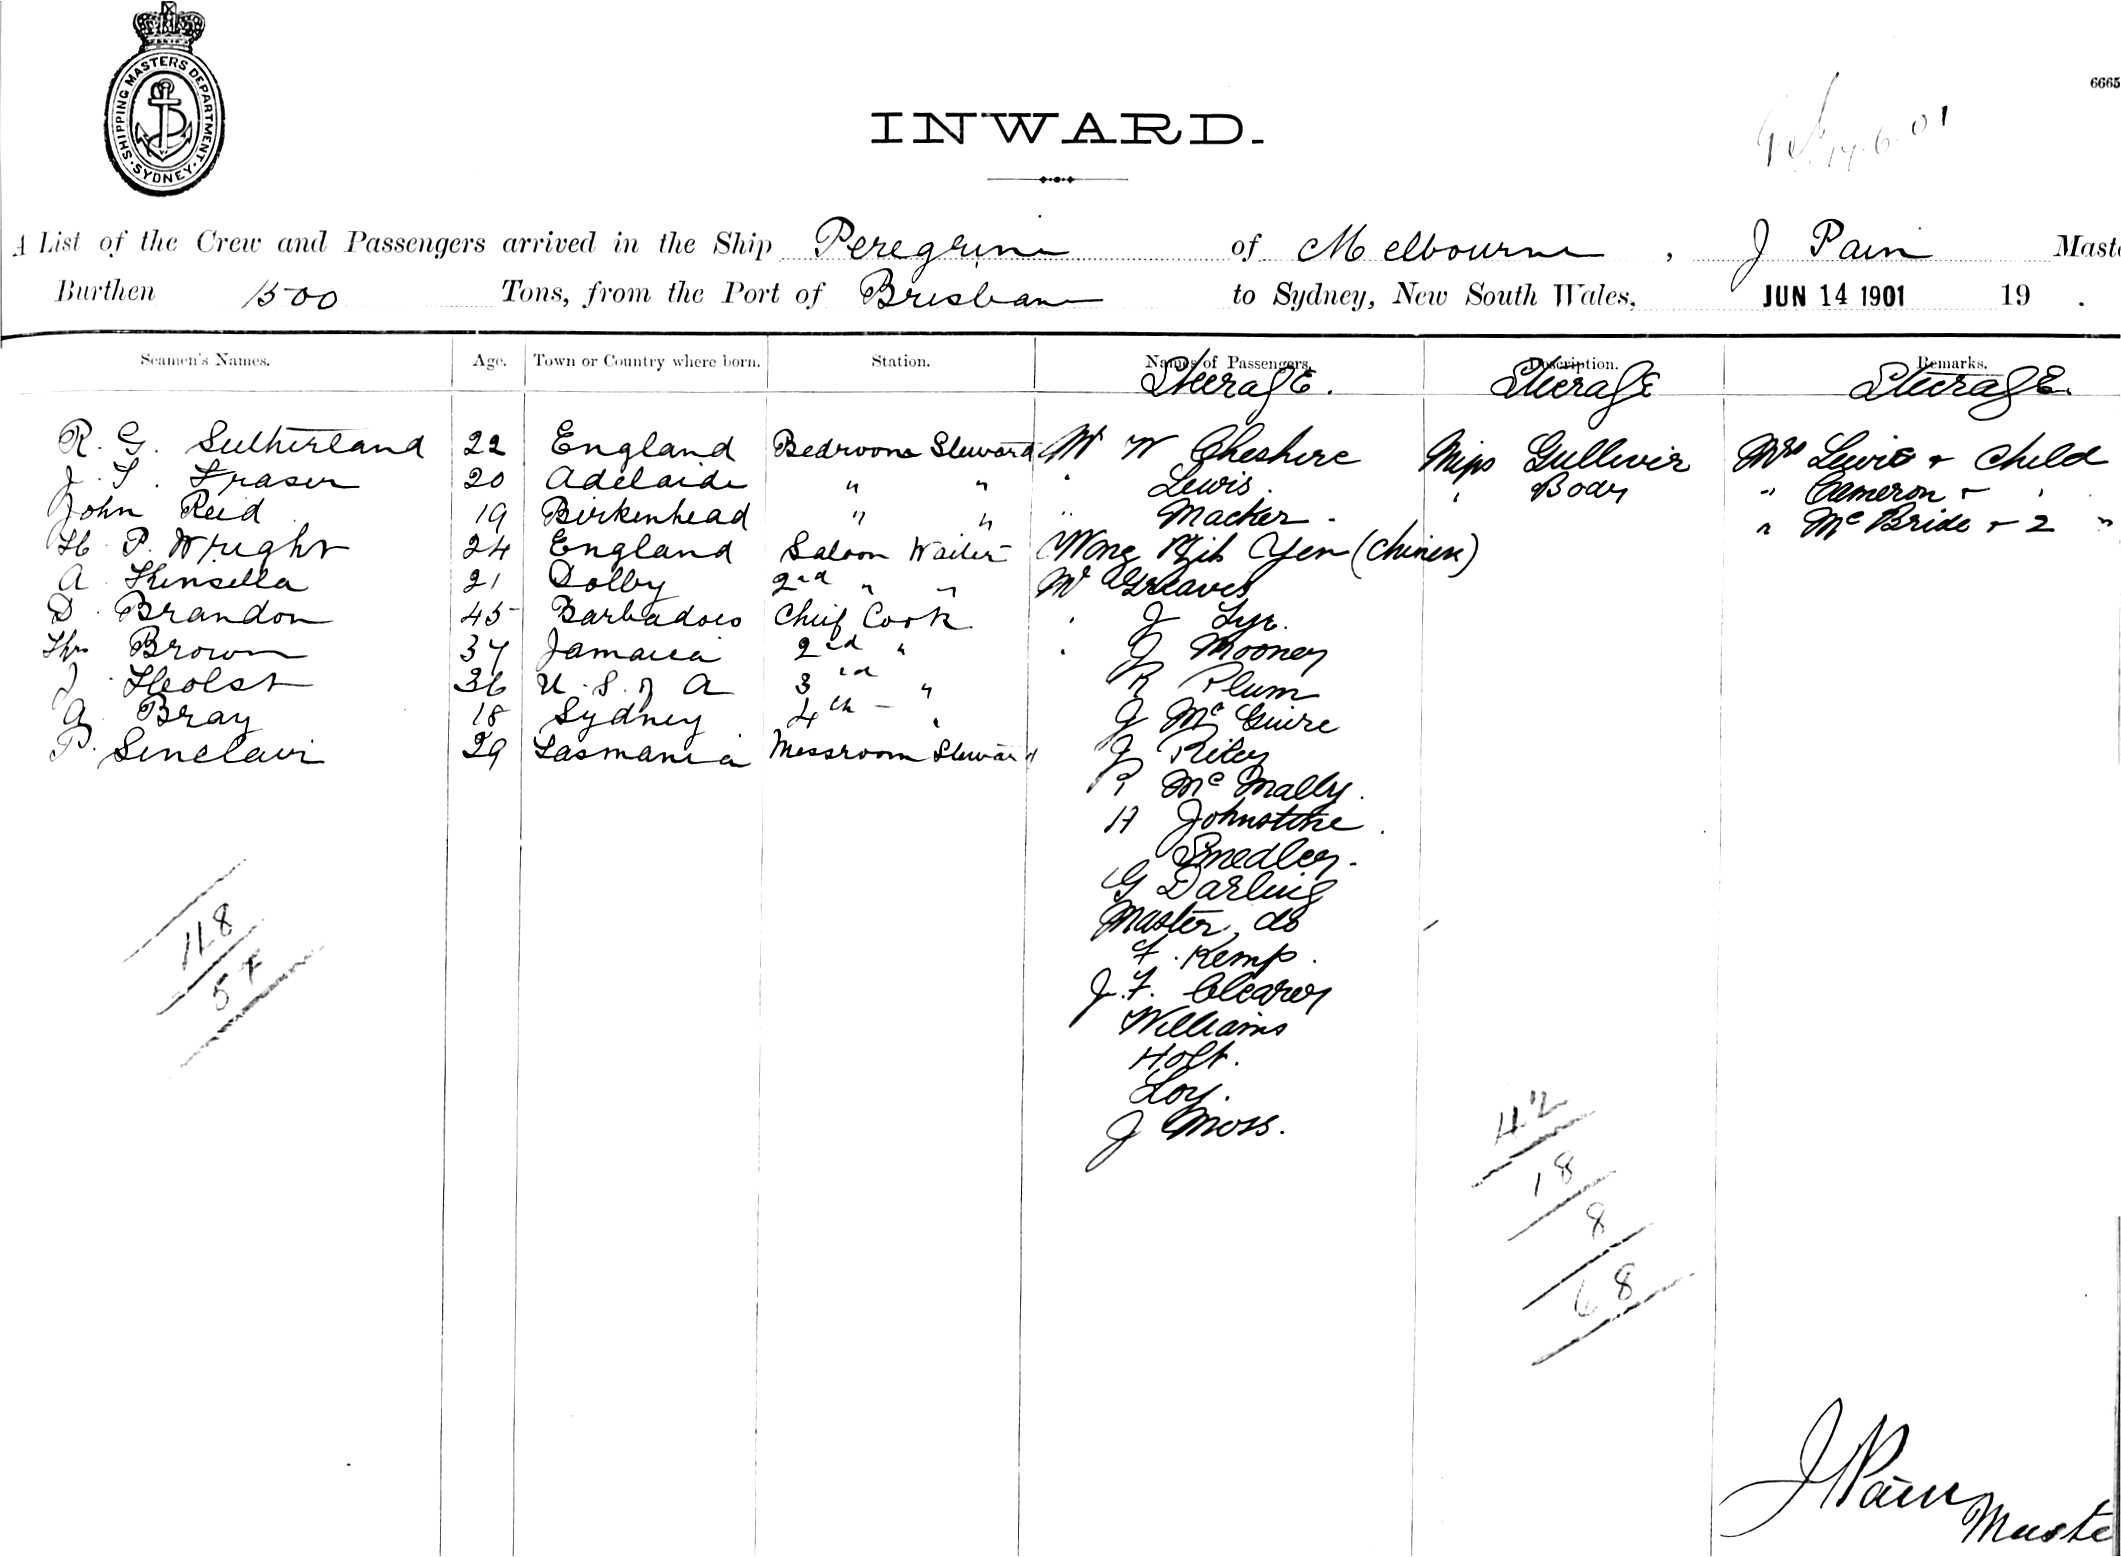 SHIPPING MASTERS DEPARTMENT. SYDNEY.
6665
INWARD.
14.6.01
A List of the Crew and Passengers arrived in the Ship Peregrine of Melbourne, J Pain Maste
Burthen 1500 Tons, from the Port of Brisbane to Sydney, New South Wales, JUN 14 1901 19 .
Seamen's Names. Age. Town or Country where born. Station. Names of Passengers. Description. Remarks.
Steerage. Steerage Steerage.
R. G. Sutherland 22 England Bedroom Steward Mr W Cheshire Miss Gulliver Mrs Lewis + Child
J. T. Fraser 20 Adelaide " " " Lewis. " Body " Cameron + "
John Reid 19 Birkenhead " " " Macker - " McBride + 2 "
H. P. Wright 24 England Saloon Waiter Wong Yen (Chinese)
A. Kinsella 21 Dolby 2nd " " Mr Greaves
D. Brandon 45 Barbadoes Chief Cook " J Lye.
Thos Brown 37 Jamaica 2nd " " J Mooney
J. Holst 36 U. S. of A 3rd " R Plum
A. Bray 18 Sydney 4th - " J McGuire
P. Sinclair 29 Tasmania Messroom Steward J Riley
P McNally.
H Johnstone.
Smedley.
G Darling
Master do
F. Kemp.
J. F. Cleary
Williams
Holt.
Loy.
J Moss.
118
57
42
18
8
68
J Pain
Maste